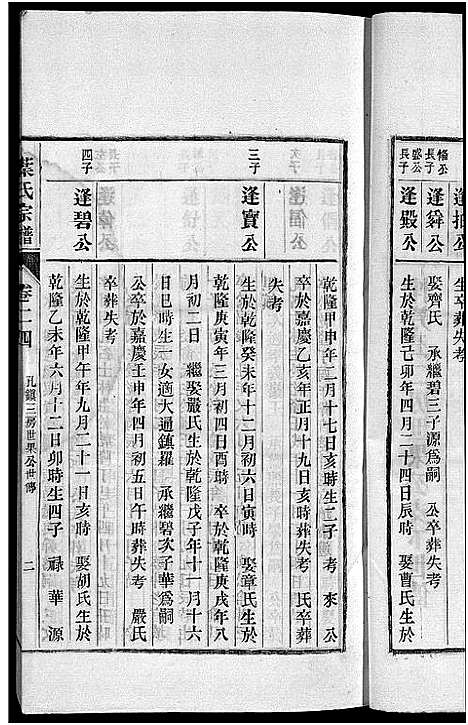 長子 盛公
逢毀公
生於乾隆己卯年四月二十四日辰時 娶曹氏生於
長子 脩公
逢舜公
娶齊氏 承繼碧三子源為嗣 公卒葬失考
生卒葬失考
乾隆甲申年二月十七日亥時生二子 考 來 公
卒於嘉慶乙亥年正月十九日亥時葬失考 氏卒葬
失考
三子
逢寶公
生於乾隆癸未年十二月初六日寅時 娶章氏生於
乾隆庚寅年三月初四日酉時 卒於乾隆庚戌年八
月初二日 繼娶嚴氏生於乾隆戊子年十一月十六
日巳時生一女適大通鎮羅 承繼碧次子華為嗣
公卒於嘉慶壬申年四月初五日午時葬失考 嚴氏
卒葬失考
四子
逢碧公
生於乾隆甲午年九月二十一日亥時 娶胡氏生於
乾隆乙未年六月十二日卯時生四子 祿 華 源
氏宗譜
卷二四
孔鎮三房世果公世傳
二